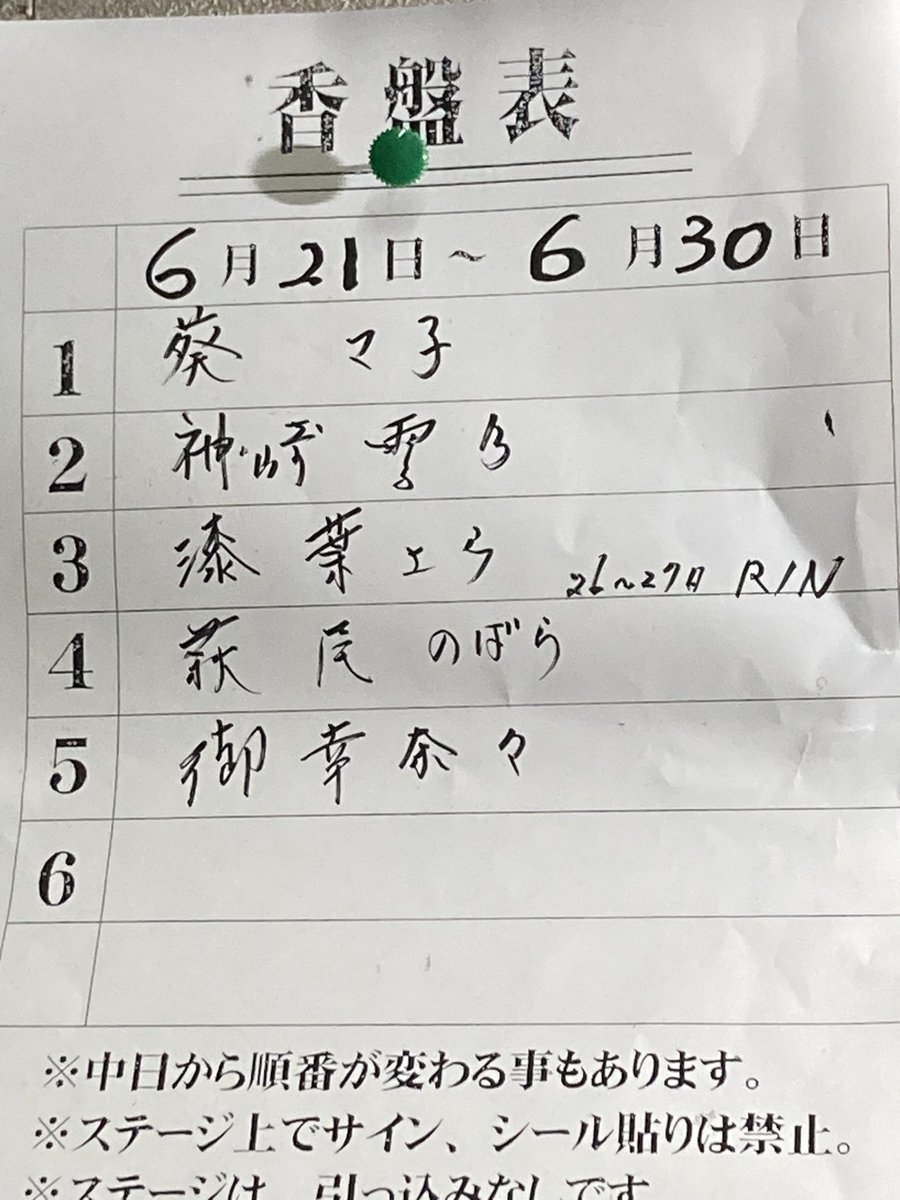 香盤表
6月21日~6月30日
1 葵 マ子
2 神崎雪乃
3 漆葉さら 26~27日 RIN
4 萩尾のぼら
5 御幸奈々
6
※中日から順番が変わる事もあります。
※ステージ上でサイン、シール貼りは禁止。
※ステージは、引っ込みなしです